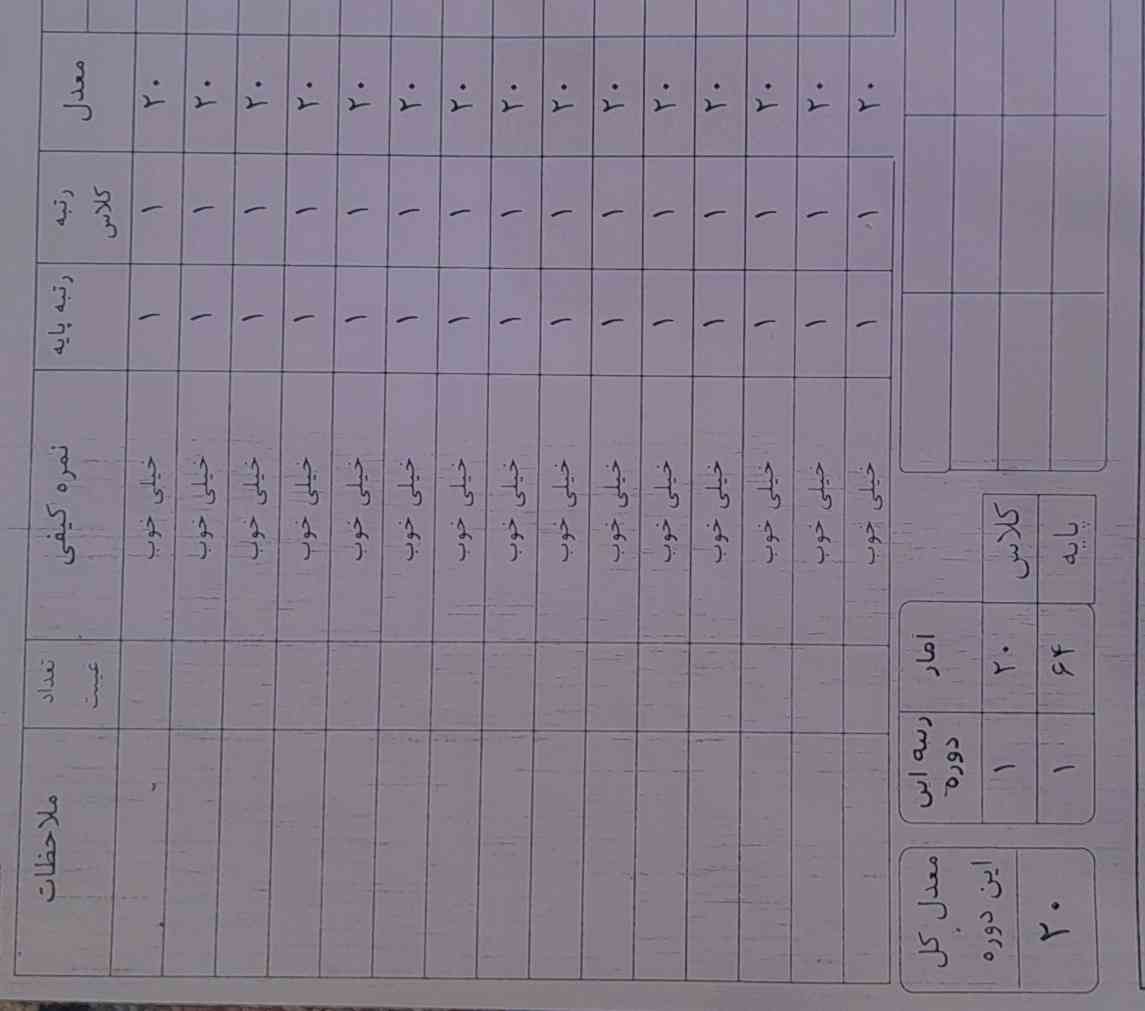 معدل رتبه کلاس رتبه پایه نمره کیفی تعداد غیبت ملاحظات
۲۰ ۱ ۱ خیلی خوب
۲۰ ۱ ۱ خیلی خوب
۲۰ ۱ ۱ خیلی خوب
۲۰ ۱ ۱ خیلی خوب
۲۰ ۱ ۱ خیلی خوب
۲۰ ۱ ۱ خیلی خوب
۲۰ ۱ ۱ خیلی خوب
۲۰ ۱ ۱ خیلی خوب
۲۰ ۱ ۱ خیلی خوب
۲۰ ۱ ۱ خیلی خوب
۲۰ ۱ ۱ خیلی خوب
۲۰ ۱ ۱ خیلی خوب
۲۰ ۱ ۱ خیلی خوب
۲۰ ۱ ۱ خیلی خوب
۲۰ ۱ ۱ خیلی خوب
امار رتبه این دوره
کلاس ۲۰ ۱
پایه ۶۴ ۱
معدل کل
این دوره
۲۰